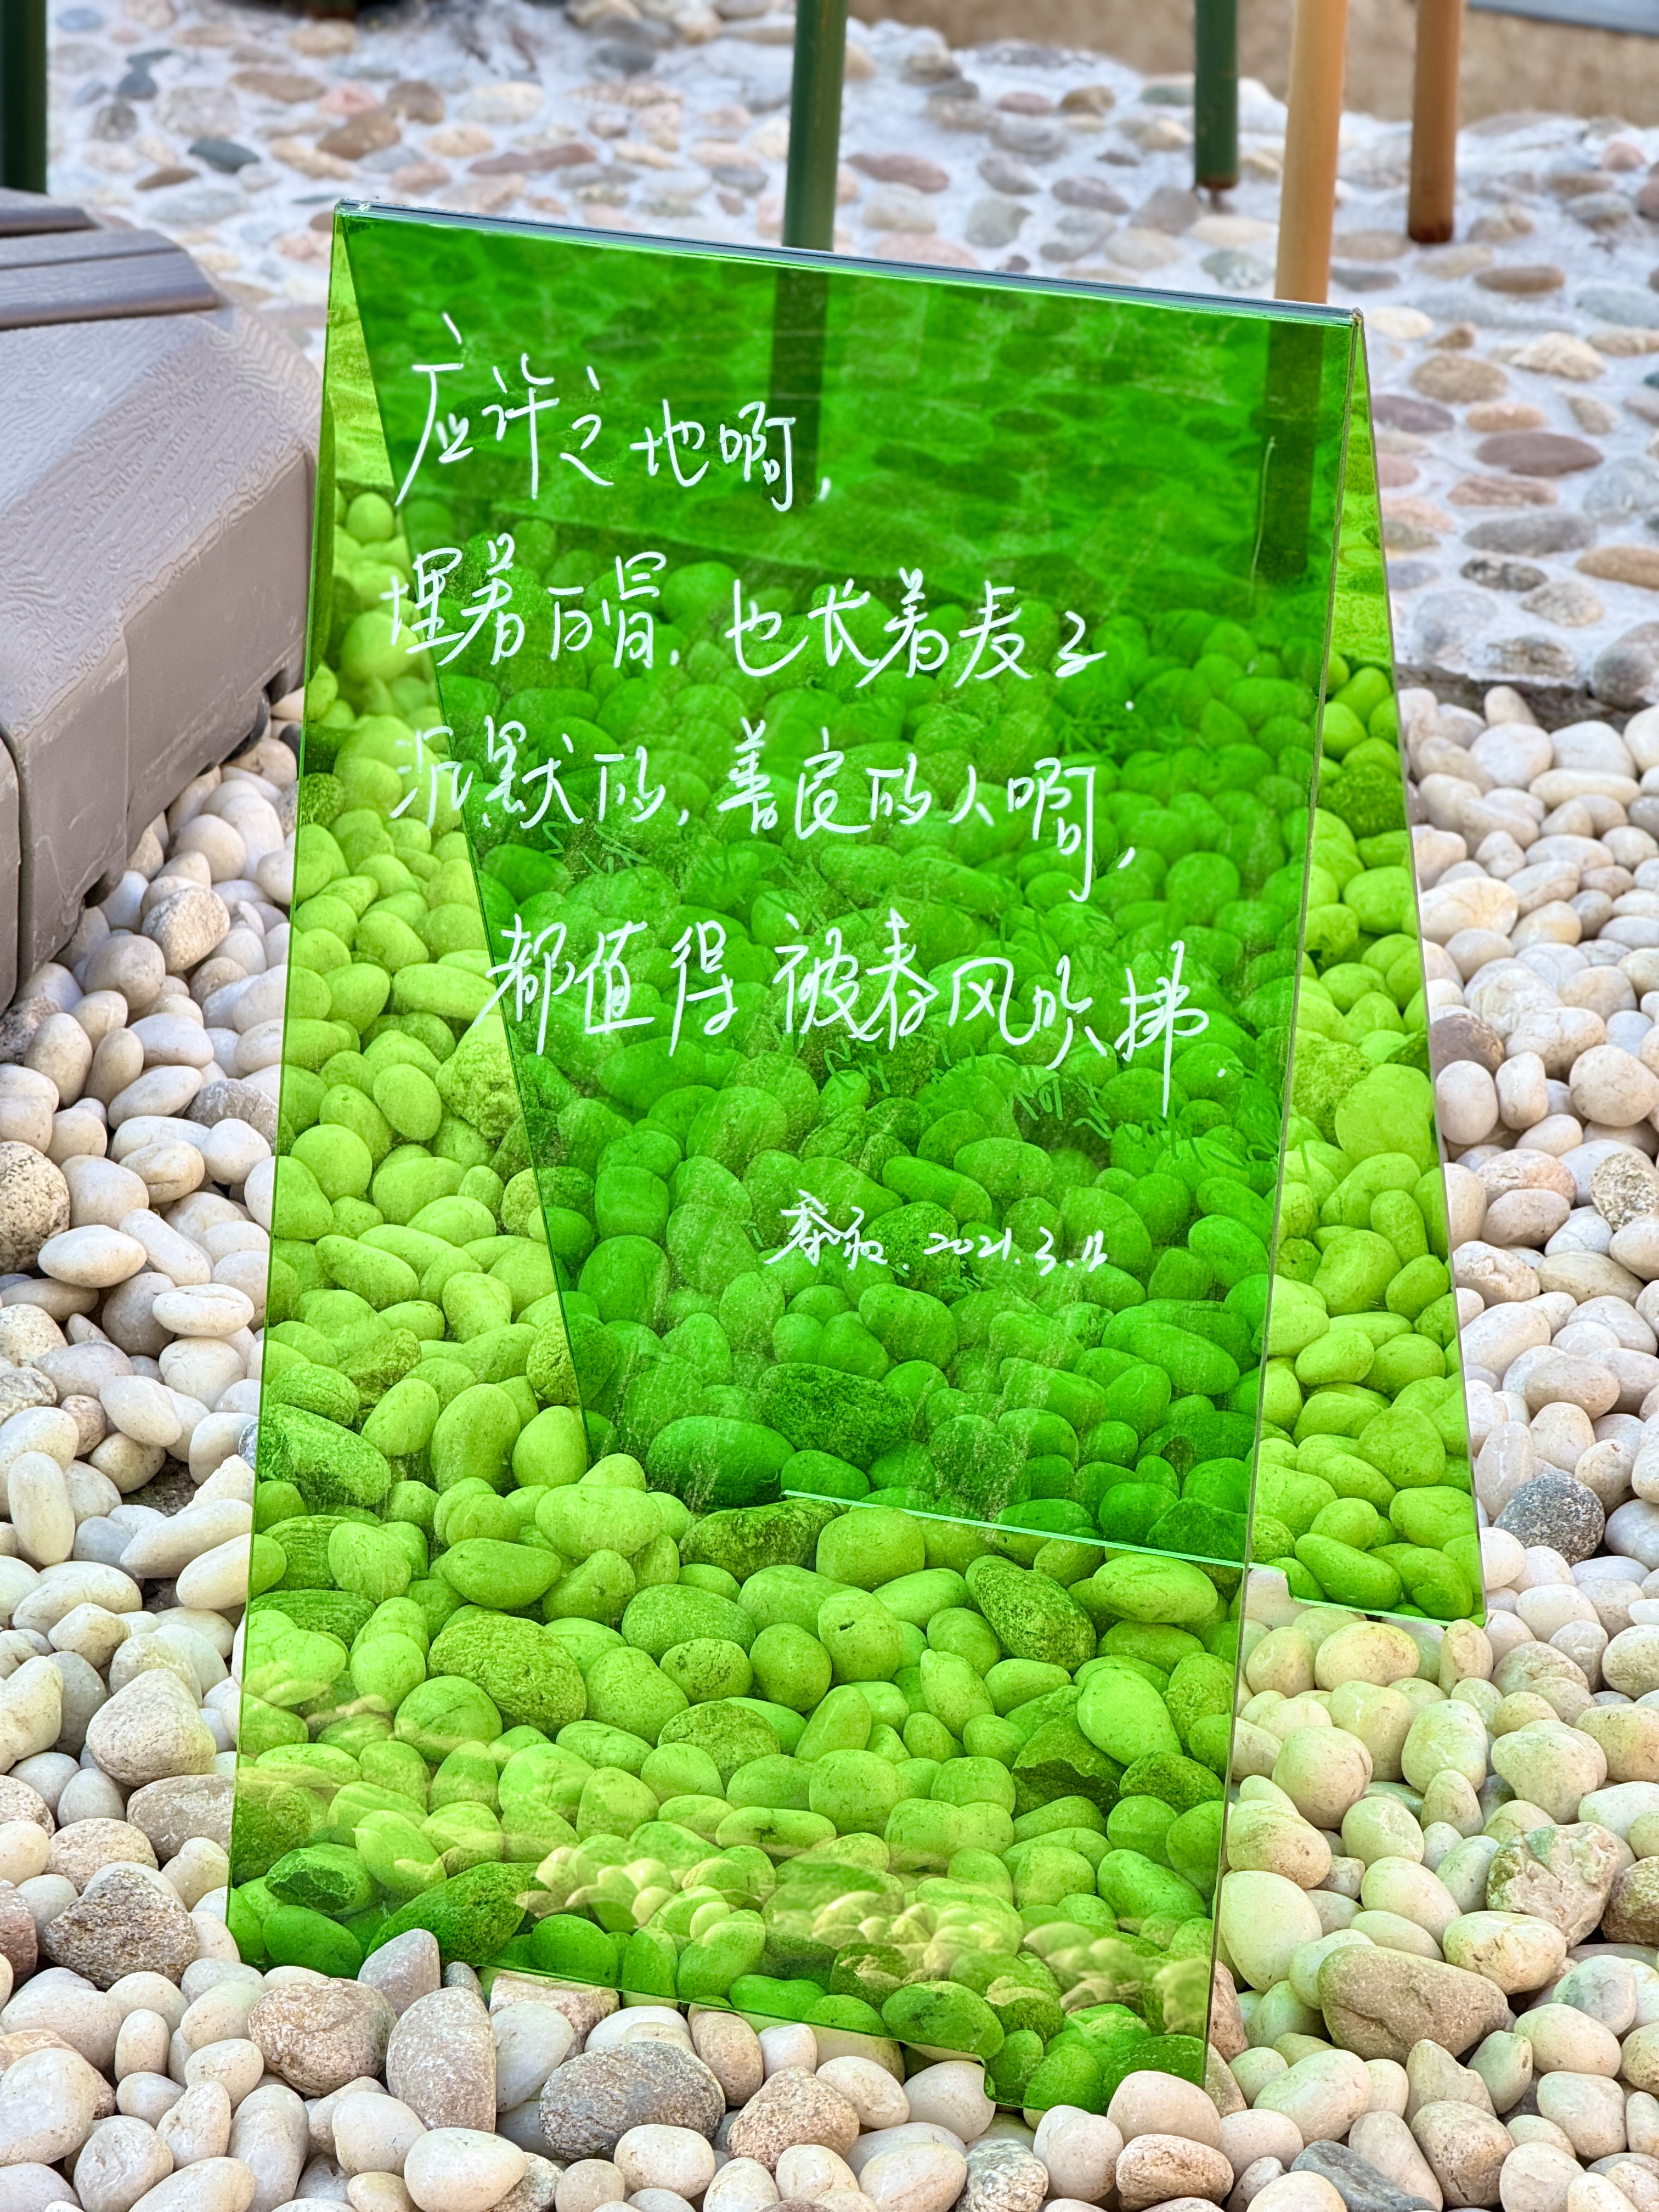 应许之地啊,
埋着白骨,也长着麦子
沉默的,善良的人啊,
都值得被春风吹拂.
2021.3.12